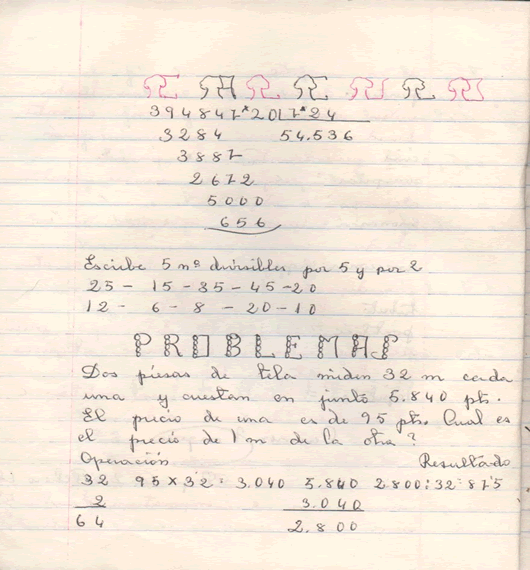 394847*2017*24
3284 54.536
3887
2672
5000
656
Escribe 5 nº divisibles por 5 y por 2
25 - 15 - 35 - 45 - 20
12 - 6 - 8 - 20 - 10
PROBLEMAS
Dos piesas de tela miden 32 m cada
una y cuestan en junto 5.840 pts.
El precio de una es de 95 pts. Cual es
el precio de 1 m de la otra?
Operación Resultado
32 95 x 32 = 3.040 5.840 2.800:32=87'5
2 3.040
64 2.800